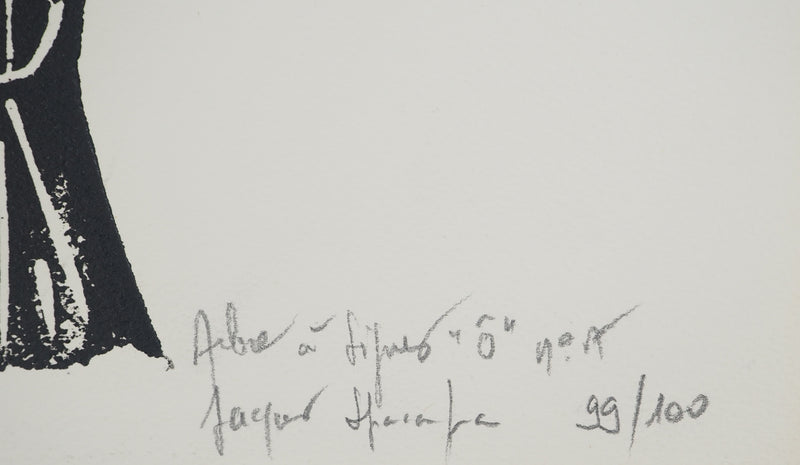 Arbre à Signes "Ô" n°
Jacques Spacagna 99/100